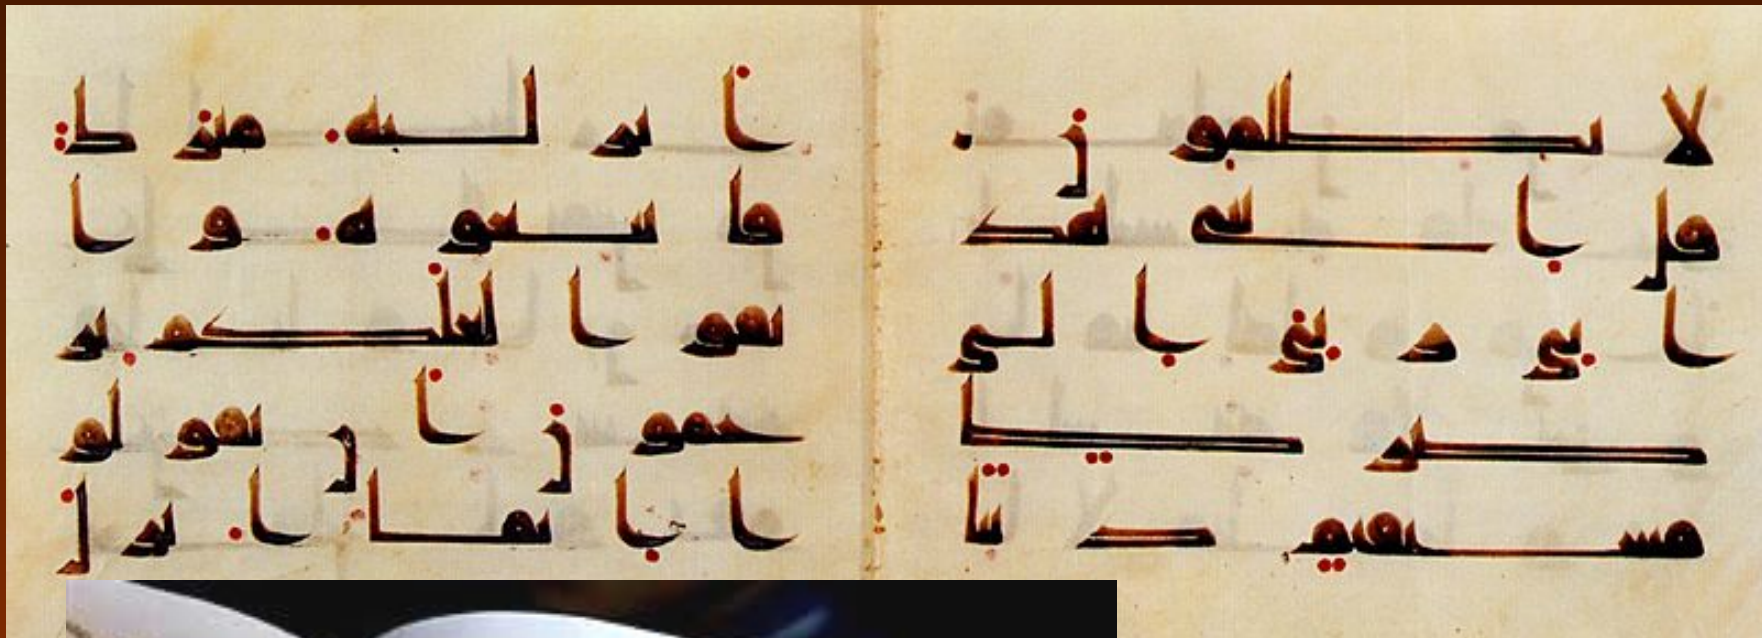 لا يظلمون
قل اننى هد
انى ربى الى
صر ط
مستقيم دينا
انزلنه مبرك
فاتبعوه وا
تقوا لعلكم تر
حمون ان تقولو
ا انما انزل